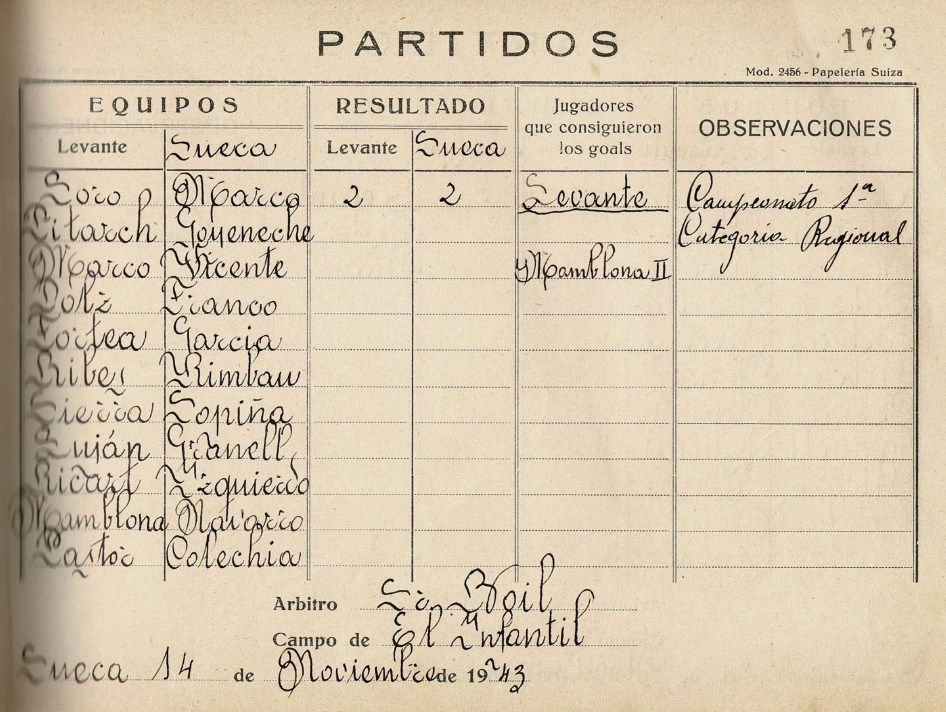 PARTIDOS 173
Mod. 2456 - Papelería Suiza
EQUIPOS RESULTADO Jugadores que consiguieron los goals OBSERVACIONES
Levante Sueca Levante Sueca
Soro Marco 2 2 Levante Campeonato 1ª
Pitarch Goyeneche Categoria Regional
Marco Vicente Mamblona II
Dolz Franco
Fortea Garcia
Ribes Rimbau
Sierra Lopiña
Luján Granell
Ricart Izquierdo
Mamblona Navarro
Pastor Colechia
Arbitro Sr. Boil
Campo de El Infantil
Sueca 14 de Noviembre de 1943